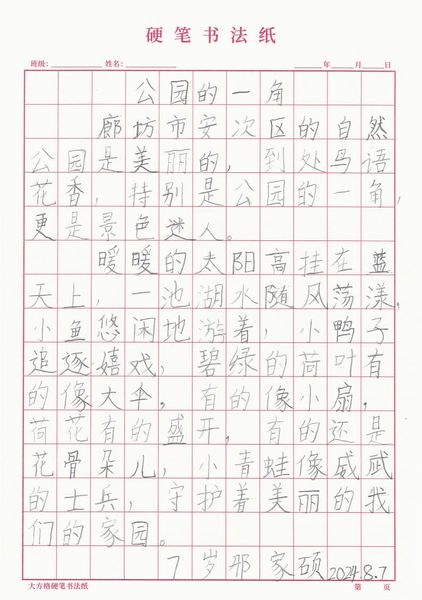 硬笔书法纸
班级: 姓名: 年 月 日
公园的一角
廊坊市安次区的自然
公园是美丽的，到处鸟语
花香，特别是公园的一角，
更是景色迷人。
暖暖的太阳高挂在蓝
天上，一池湖水随风荡漾，
小鱼悠闲地游着，小鸭子
追逐嬉戏，碧绿的荷叶有
的像大伞，有的像小扇，
荷花有的盛开，有的还是
花骨朵儿，小青蛙像威武
的士兵，守护着美丽的我
们的家园。
7岁邢家硕2024.8.7
大方格硬笔书法纸 第 页